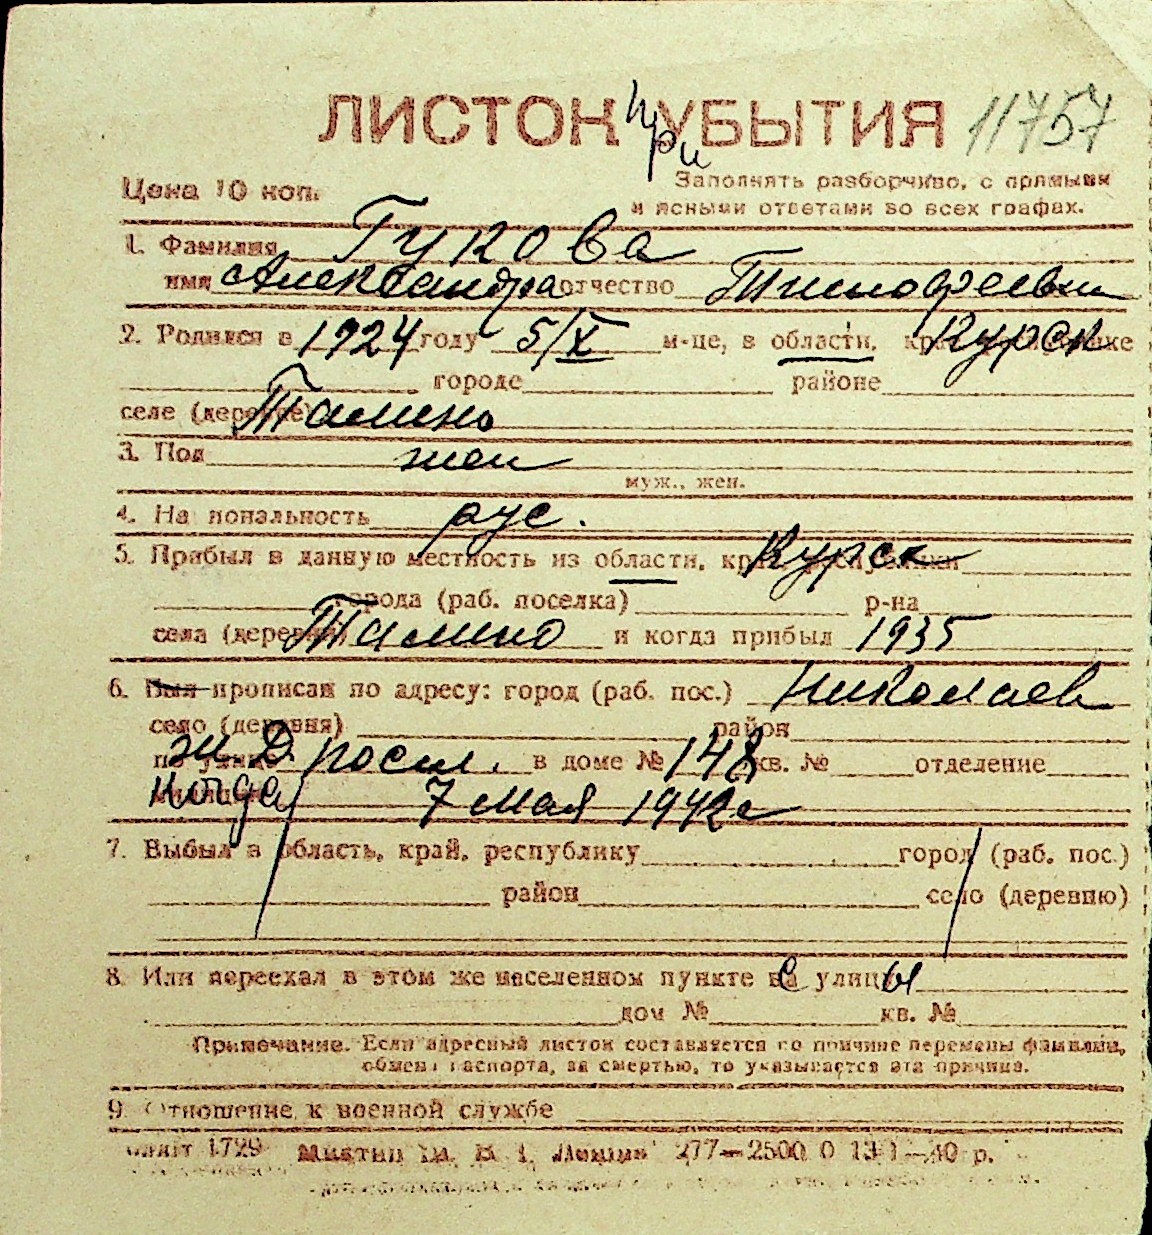 ЛИСТОК при УБЫТИЯ 11757
Цена 10 коп. Заполнять разборчиво, с прямыми
и ясными ответами во всех графах.
1. Фамилия Гукова
имя Александра отчество Тимофеевн
2. Родился в 1924 году 5/X м-це, в области, Курск
городе районе
селе (деревне) Тамино
3. Пол жен
муж., жен.
4. Национальность рус.
5. Прибыл в данную местность из области, края, республики Курск
города (раб. поселка) р-на
села (деревни) Тамино и когда прибыл 1935
6. Был прописан по адресу: город (раб. пос.) Николаев
село (деревня) район
по улице в доме № 148 кв. № отделение
Когда 7 мая 1942 г
7. Выбыл в область, край, республику город (раб. пос.)
район село (деревню)
8. Или переехал в этом же населенном пункте с улицы
дом № кв. №
Примечание. Если адресный листок составляется по причине перемены фамилии,
обмена паспорта, за смертью, то указывается эта причина.
9. Отношение к военной службе
1729 277—2500 0 13-1—40 р.